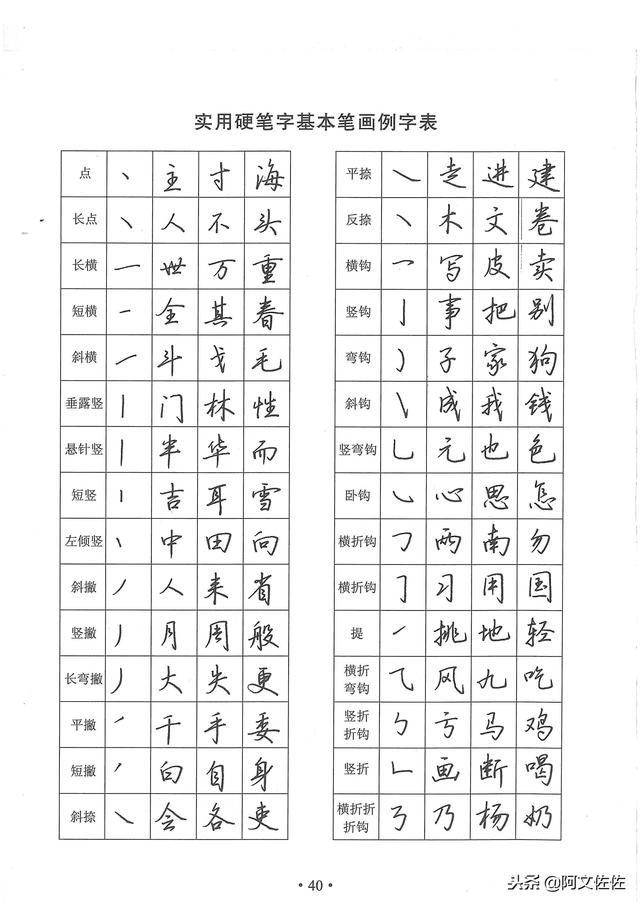 实用硬笔字基本笔画例字表
点 丶 主 寸 海
长点 丶 人 不 头
长横 一 世 万 重
短横 一 全 其 春
斜横 一 斗 戈 毛
垂露竖 丨 门 林 性
悬针竖 丨 半 华 而
短竖 丨 吉 耳 雪
左倾竖 丶 中 田 向
斜撇 丿 人 来 省
竖撇 丿 月 周 般
长弯撇 丿 大 失 更
平撇 丿 千 手 委
短撇 丿 白 自 身
斜捺 ㇏ 会 各 吏
平捺 ㇏ 走 进 建
反捺 丶 木 文 卷
横钩 乛 写 皮 卖
竖钩 亅 事 把 别
弯钩 ㇁ 子 家 狗
斜钩 ㇂ 成 我 钱
竖弯钩 乚 元 也 色
卧钩 ㇃ 心 思 怎
横折钩 ㇆ 两 南 勿
横折钩 ㇆ 习 用 国
提 ㇀ 挑 地 轻
横折
弯钩 ⺄ 风 九 吃
竖折
折钩 ㇉ 亏 马 鸡
竖折 ㇗ 画 断 喝
横折折
折钩 ㇡ 乃 杨 奶
· 40 ·
头条 @阿文佐佐